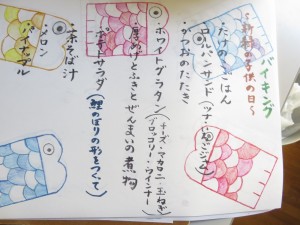 バイキング
～新村の子供の日～
・たけのこごはん
・ロールパンサンド(ツナ・いちごジャム)
・かつおのたたき
・ホワイトグラタン(チーズ・マカロニ・玉ねぎ
ブロッコリー・ウインナー)
・厚あげとふきとぜんまいの煮物
・ポテトサラダ(鯉のぼりの形をつくって)
・茶そば汁
・メロン
・パイナップル